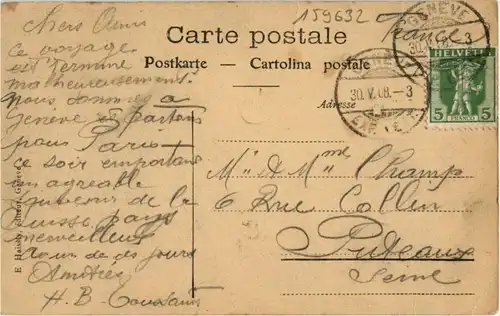 159632
Carte postale
Postkarte — Cartolina postale
Adresse
France
GENÈVE
30. V. 08. – 3
HELVETIA
5
FRANCO
Chers Amis
Ce voyage
est terminé
malheureusement
Nous sommes à
Genève et partons
pour Paris
ce soir emportant
un agréable
souvenir de la
Suisse pays
merveilleux
de ces jours
Amitiés
H. B. Toussaint
Mr & Mme Champ
6 Rue Collin
Puteaux
Seine
éditeur, Genève